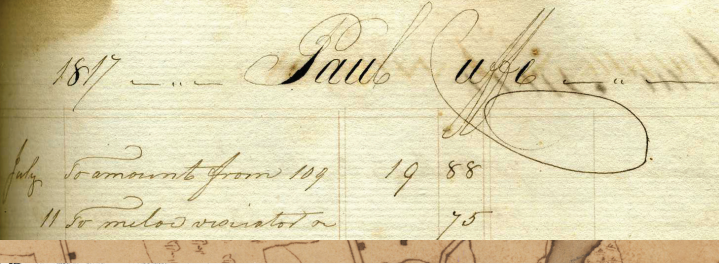 1817 Paul Cuffe
July To amount from 109 19 88
11 To 75